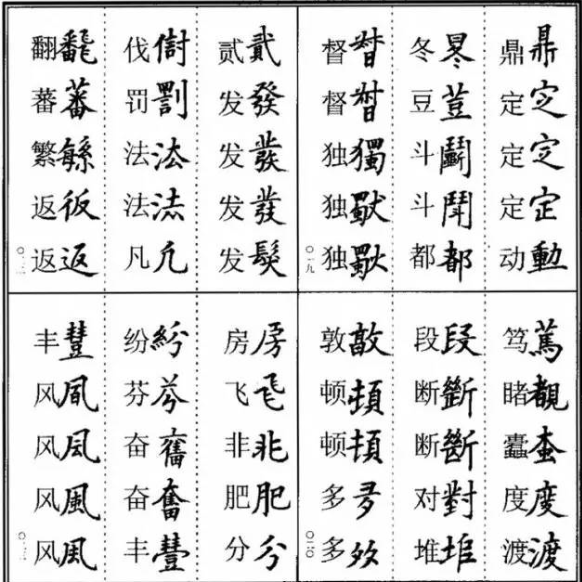 鼎鼎
定㝎
定㝎
定定
动動
冬冬
豆荳
斗鬭
斗鬥
都都
督督
督督
独獨
独
独
〇一九
笃篤
睹覩
蠹
度度
渡渡
段段
断斷
断斷
对對
堆堆
敦敦
顿頓
顿頓
多多
多
〇二〇
贰貳
发發
发發
发發
发髮
伐
罚罰
法法
法法
凡凡
翻飜
蕃蕃
繁緐
返仮
返返
房房
飞飞
非非
肥肥
分分
纷紛
芬芬
奋奮
奋奮
丰豐
丰豐
风風
风風
风風
风風